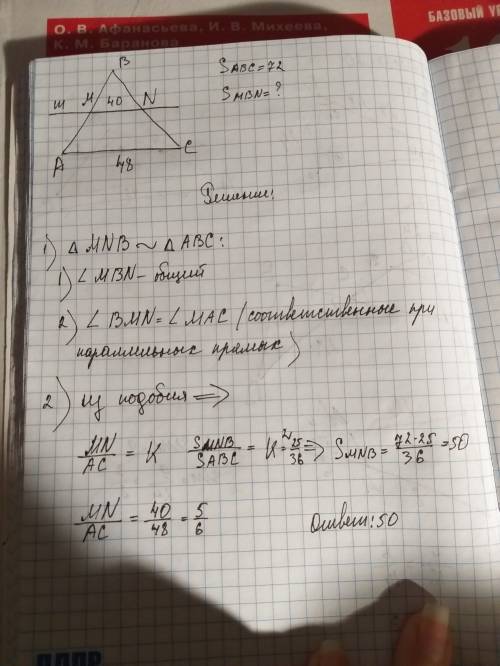 О. В. Афанасьева, И. В. Михеева,
К. М. Баранова
БАЗОВЫЙ УР
B
SABC=72
ш M 40 N
SMBN=?
A C
48
Решение:
1) △ MNB ~ △ ABC:
1) ∠ MBN - общий
2) ∠ BMN = ∠ MAC (соответственные при
параллельных прямых)
2) из подобия =>
MN/AC = K SMNB/SABC = K²=25/36 => SMNB = 72·25/36 = 50
MN/AC = 40/48 = 5/6
Ответ: 50